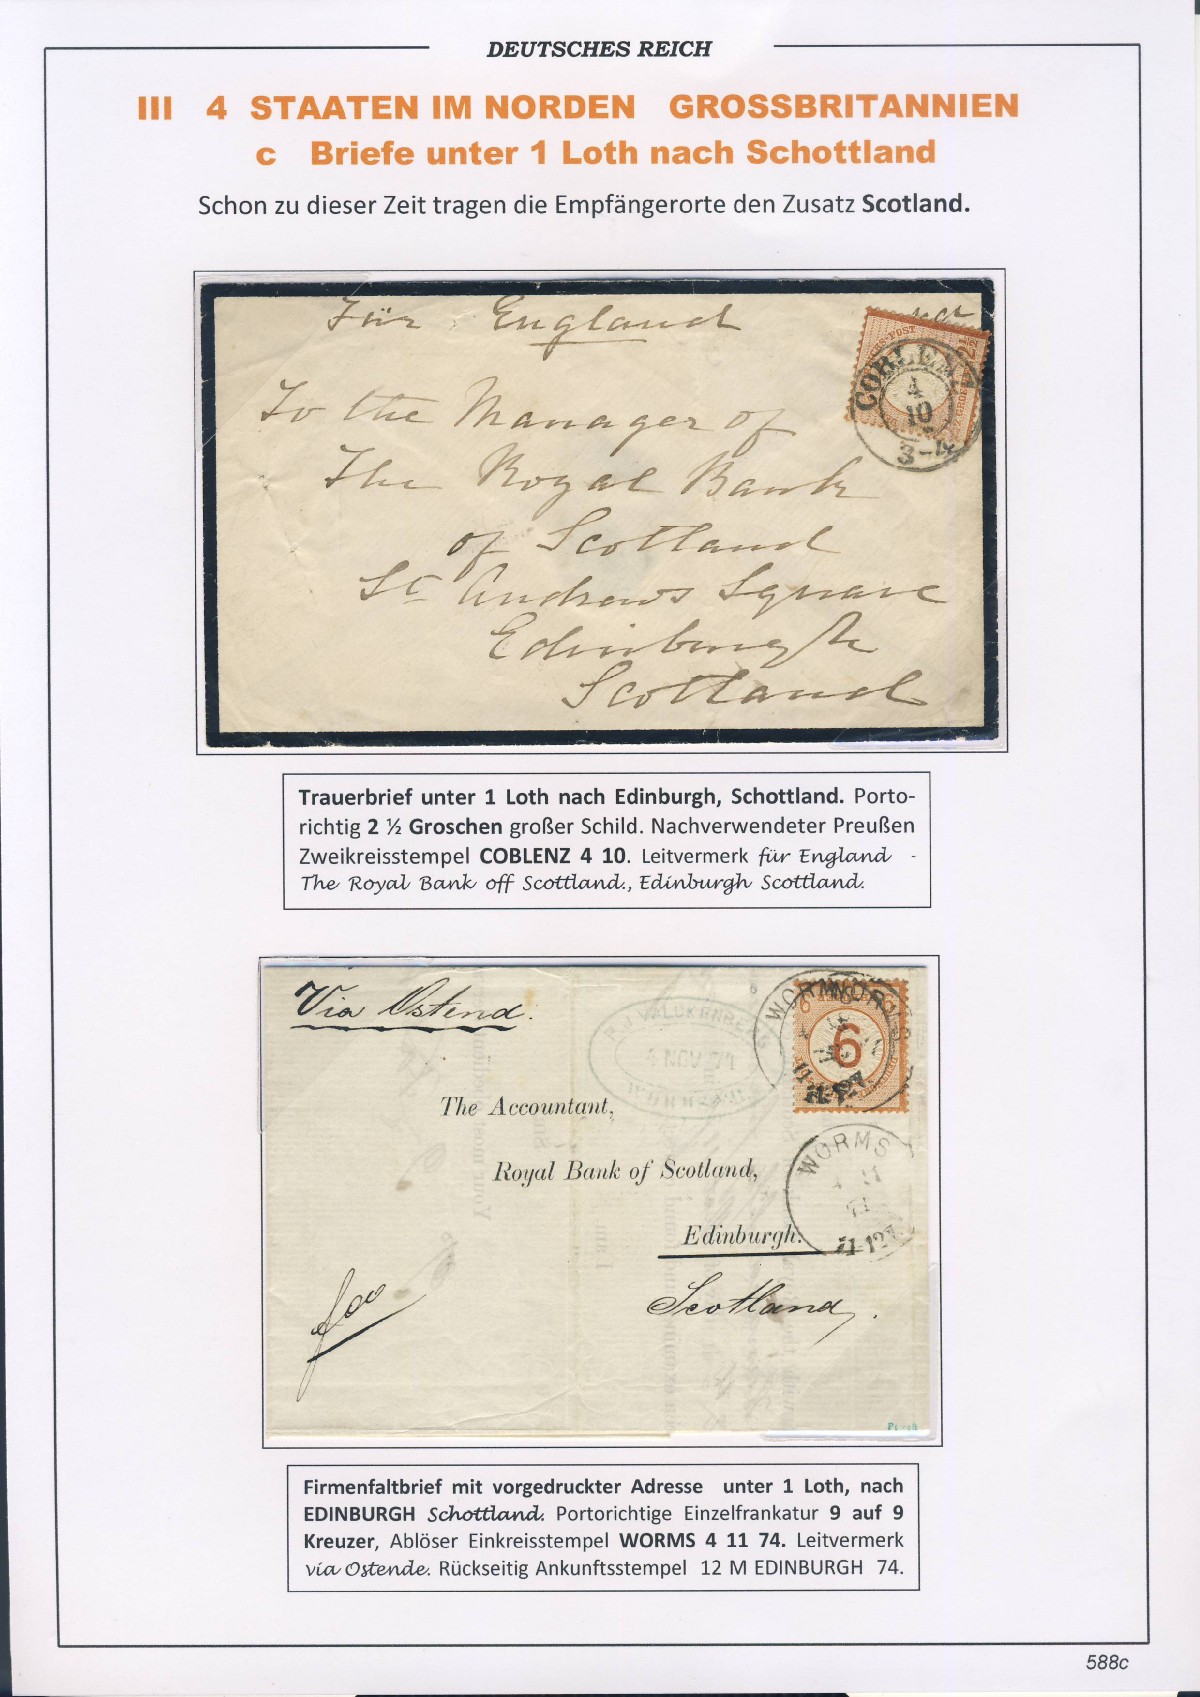 DEUTSCHES REICH
III 4 STAATEN IM NORDEN GROSSBRITANNIEN
c Briefe unter 1 Loth nach Schottland
Schon zu dieser Zeit tragen die Empfängerorte den Zusatz Scotland.
Für England
2½
COBLENZ
4
10
3-4
To the Manager of
The Royal Bank
of Scotland
St Andrews Square
Edinburgh
Scotland
Trauerbrief unter 1 Loth nach Edinburgh, Schottland. Porto-
richtig 2 ½ Groschen großer Schild. Nachverwendeter Preußen
Zweikreisstempel COBLENZ 4 10. Leitvermerk für England -
The Royal Bank off Scottland., Edinburgh Scottland.
Via Ostend.
P. J. VALCKENBERG
4 NOV 74
WORMS
WORMS
6
The Accountant,
Royal Bank of Scotland,
Edinburgh.
Scotland,.
WORMS
4 11
74
11-12V
Firmenfaltbrief mit vorgedruckter Adresse unter 1 Loth, nach
EDINBURGH Schottland. Portorichtige Einzelfrankatur 9 auf 9
Kreuzer, Ablöser Einkreisstempel WORMS 4 11 74. Leitvermerk
via Ostende. Rückseitig Ankunftsstempel 12 M EDINBURGH 74.
588c